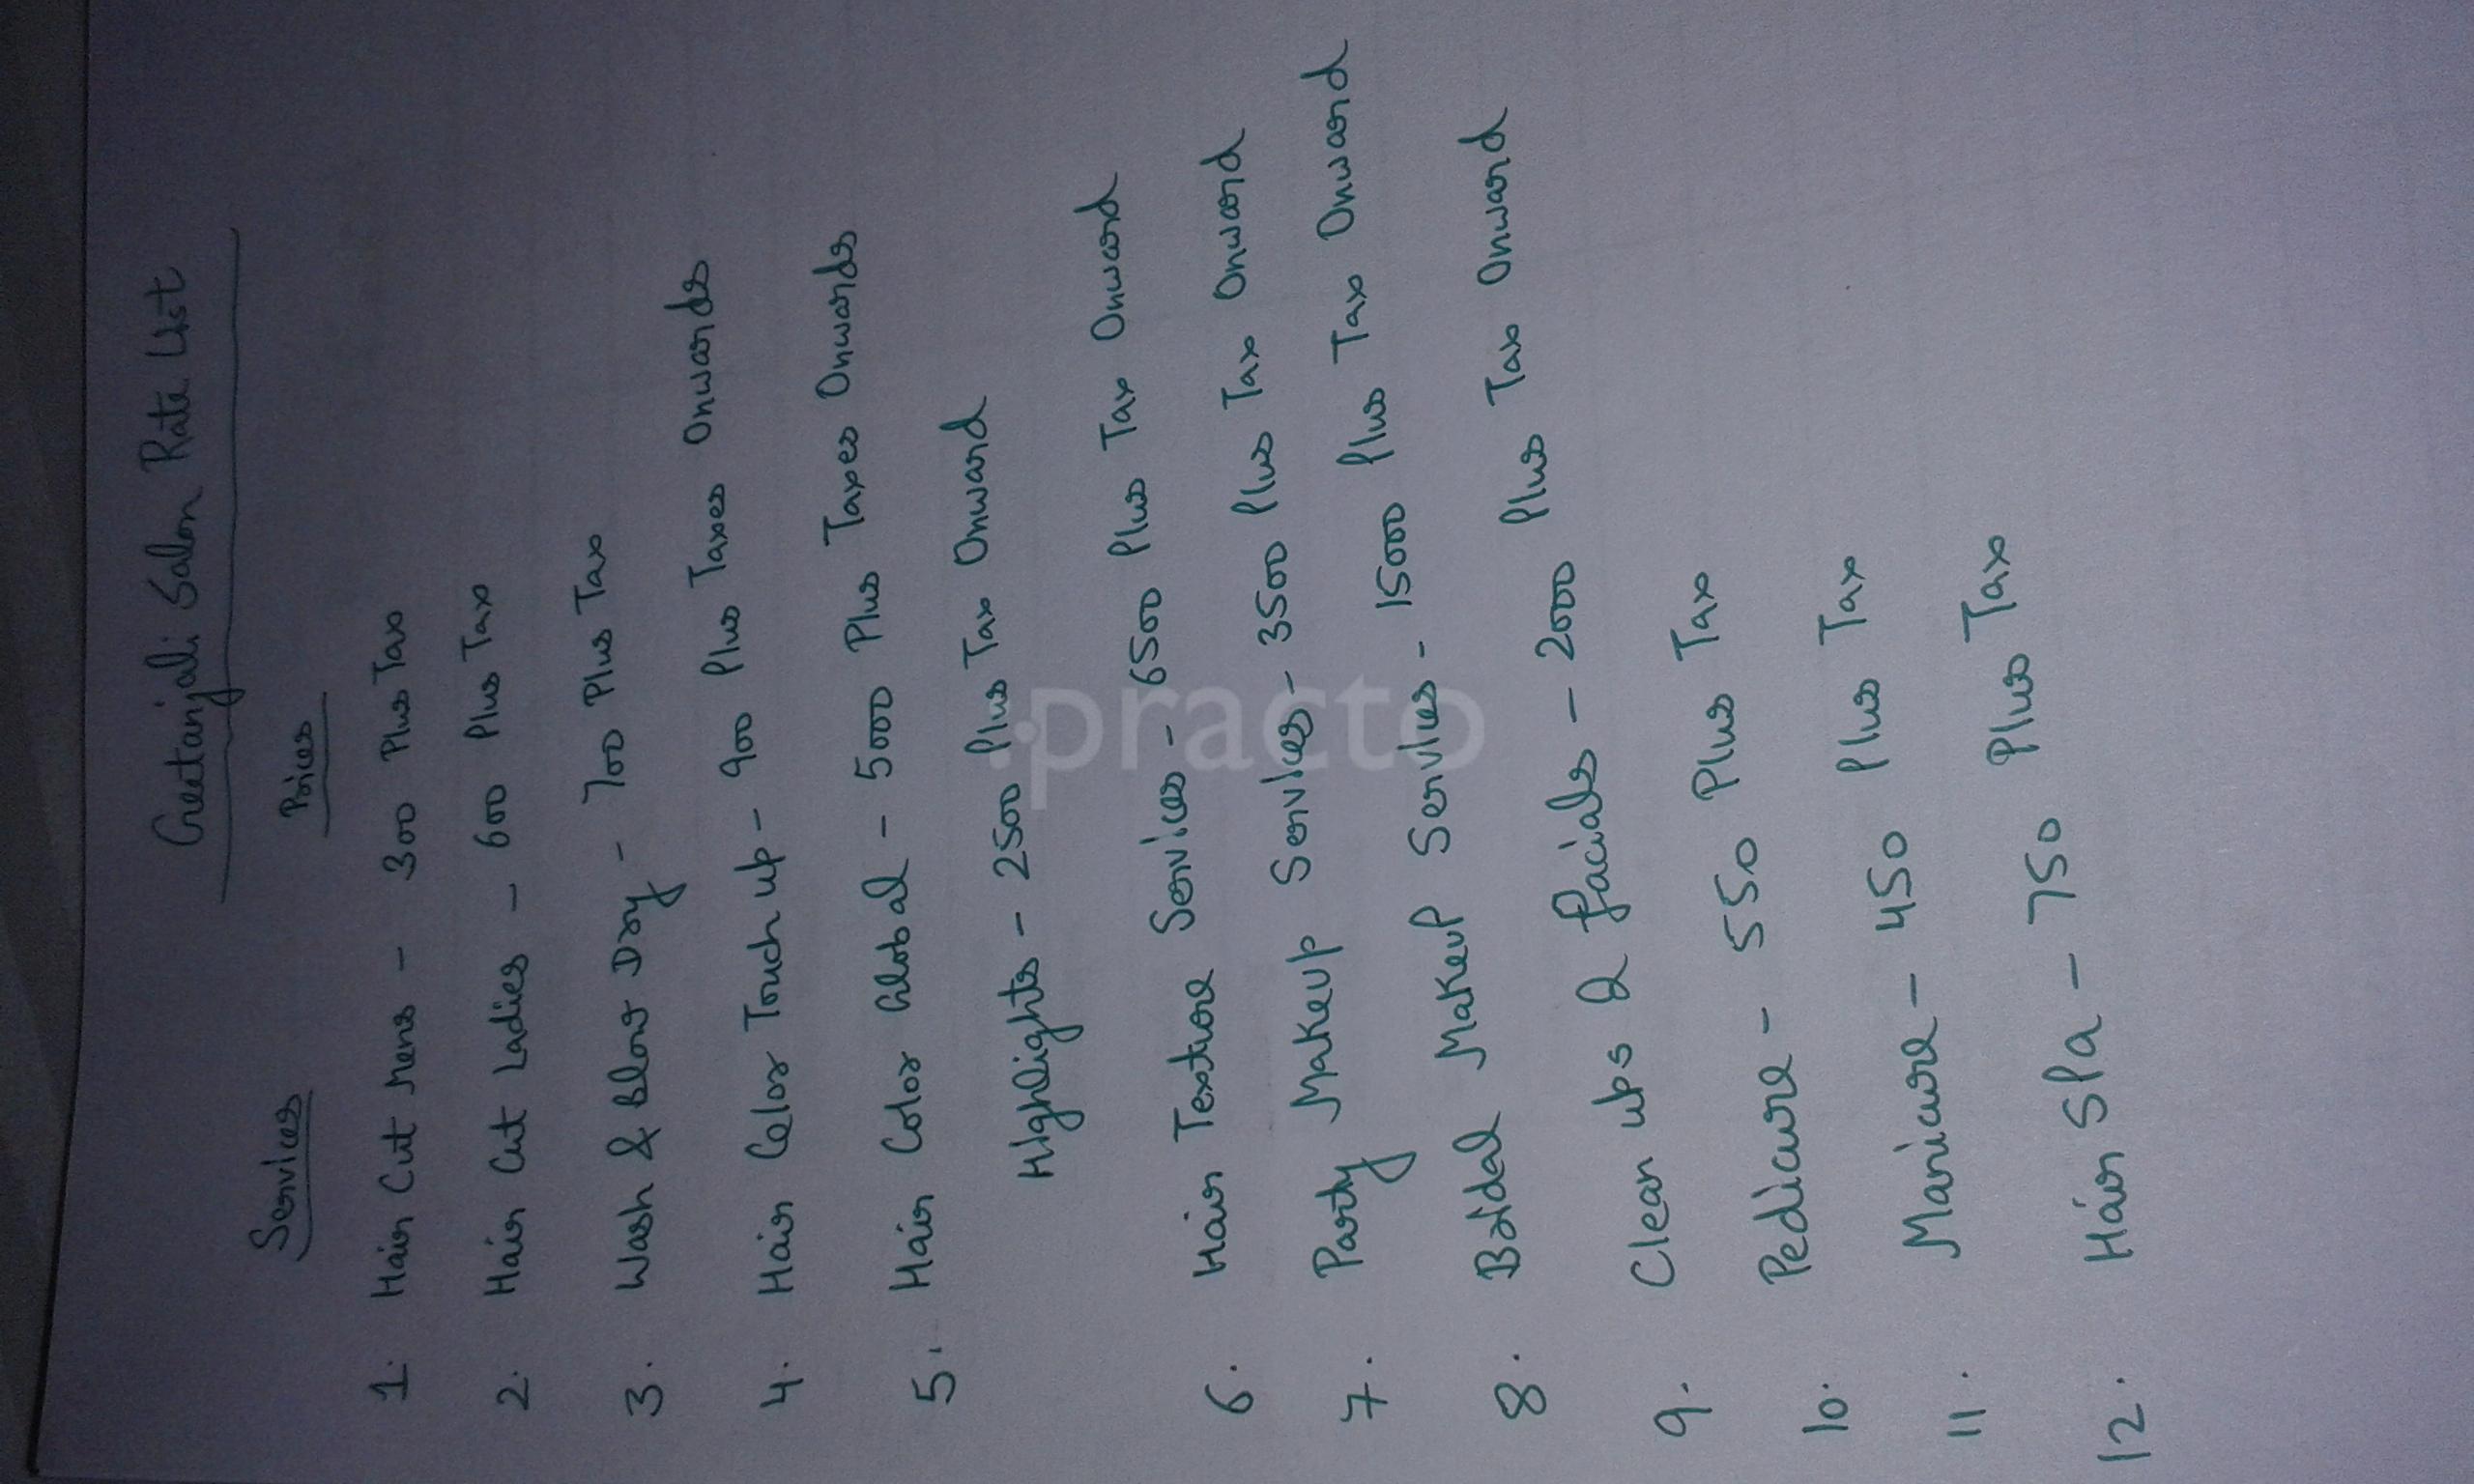 Geetanjali Salon Rate List
Services Prices
1. Hair Cut Mens - 300 Plus Tax
2. Hair Cut Ladies - 600 Plus Tax
3. Wash & Blow Dry - 700 Plus Tax
4. Hair Color Touch up - 900 Plus Taxes Onwards
5. Hair Color Global - 5000 Plus Taxes Onwards
Highlights - 2500 Plus Tax Onward
6. Hair Texture Services - 6500 Plus Tax Onward
7. Party Makeup Services - 3500 Plus Tax Onward
8. Bridal Makeup Services - 15000 Plus Tax Onward
9. Clean ups & facials - 2000 Plus Tax Onward
10. Pedicure - 550 Plus Tax
11. Manicure - 450 Plus Tax
12. Hair Spa - 750 Plus Tax
·practo